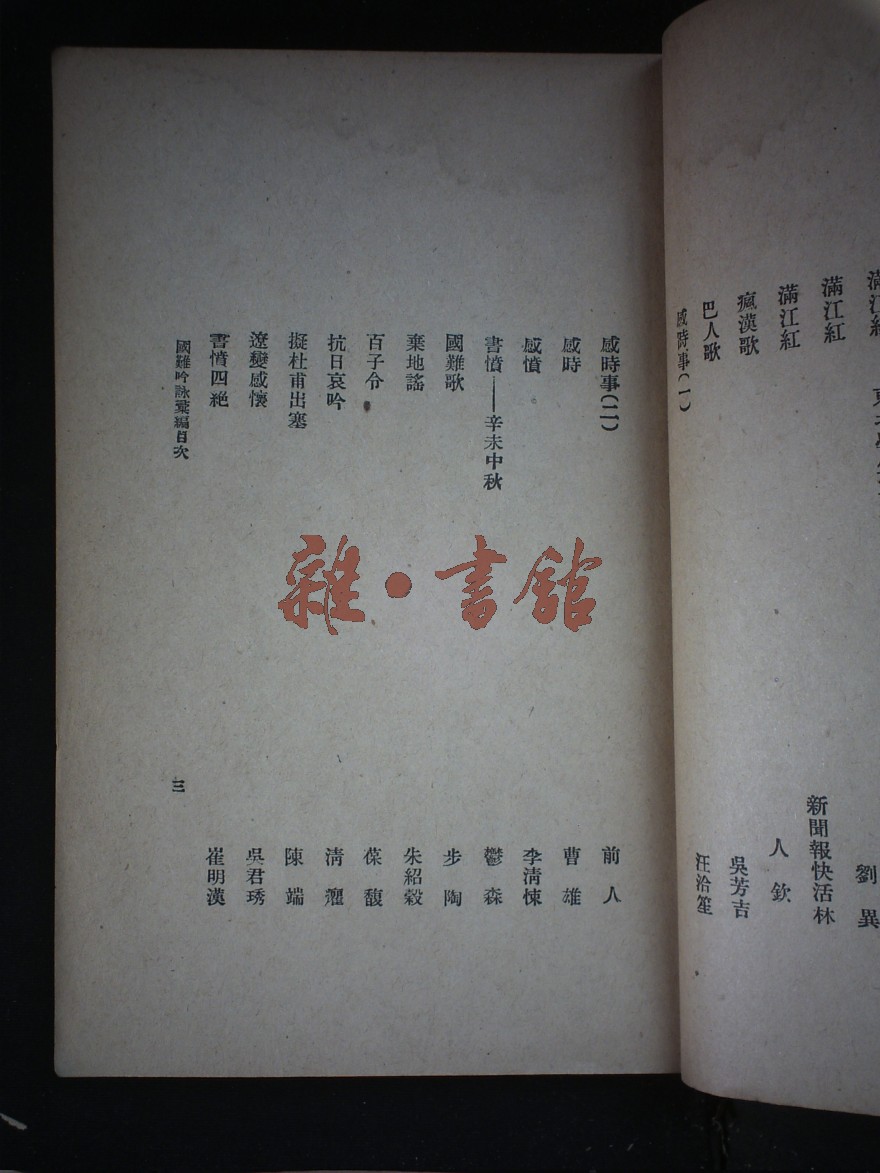 滿江紅 劉異
滿江紅 新聞報快活林
滿江紅 人欽
瘋漢歌 吳芳吉
巴人歌 汪洽笙
感時事(一)
感時事(二) 前人
感時 曹雄
感憤 李清悚
書憤——辛未中秋 鬱森
國難歌 步陶
棄地謠 朱紹穀
百子令 葆馥
抗日哀吟 清癯
擬杜甫出塞 陳端
遼變感懷 吳君琇
書憤四絕 崔明漢
國難吟詠彙編目次 三
雜·書館